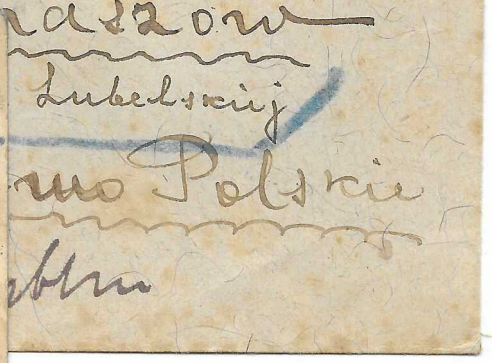 raszow
Lubelskiej
mo Polskie